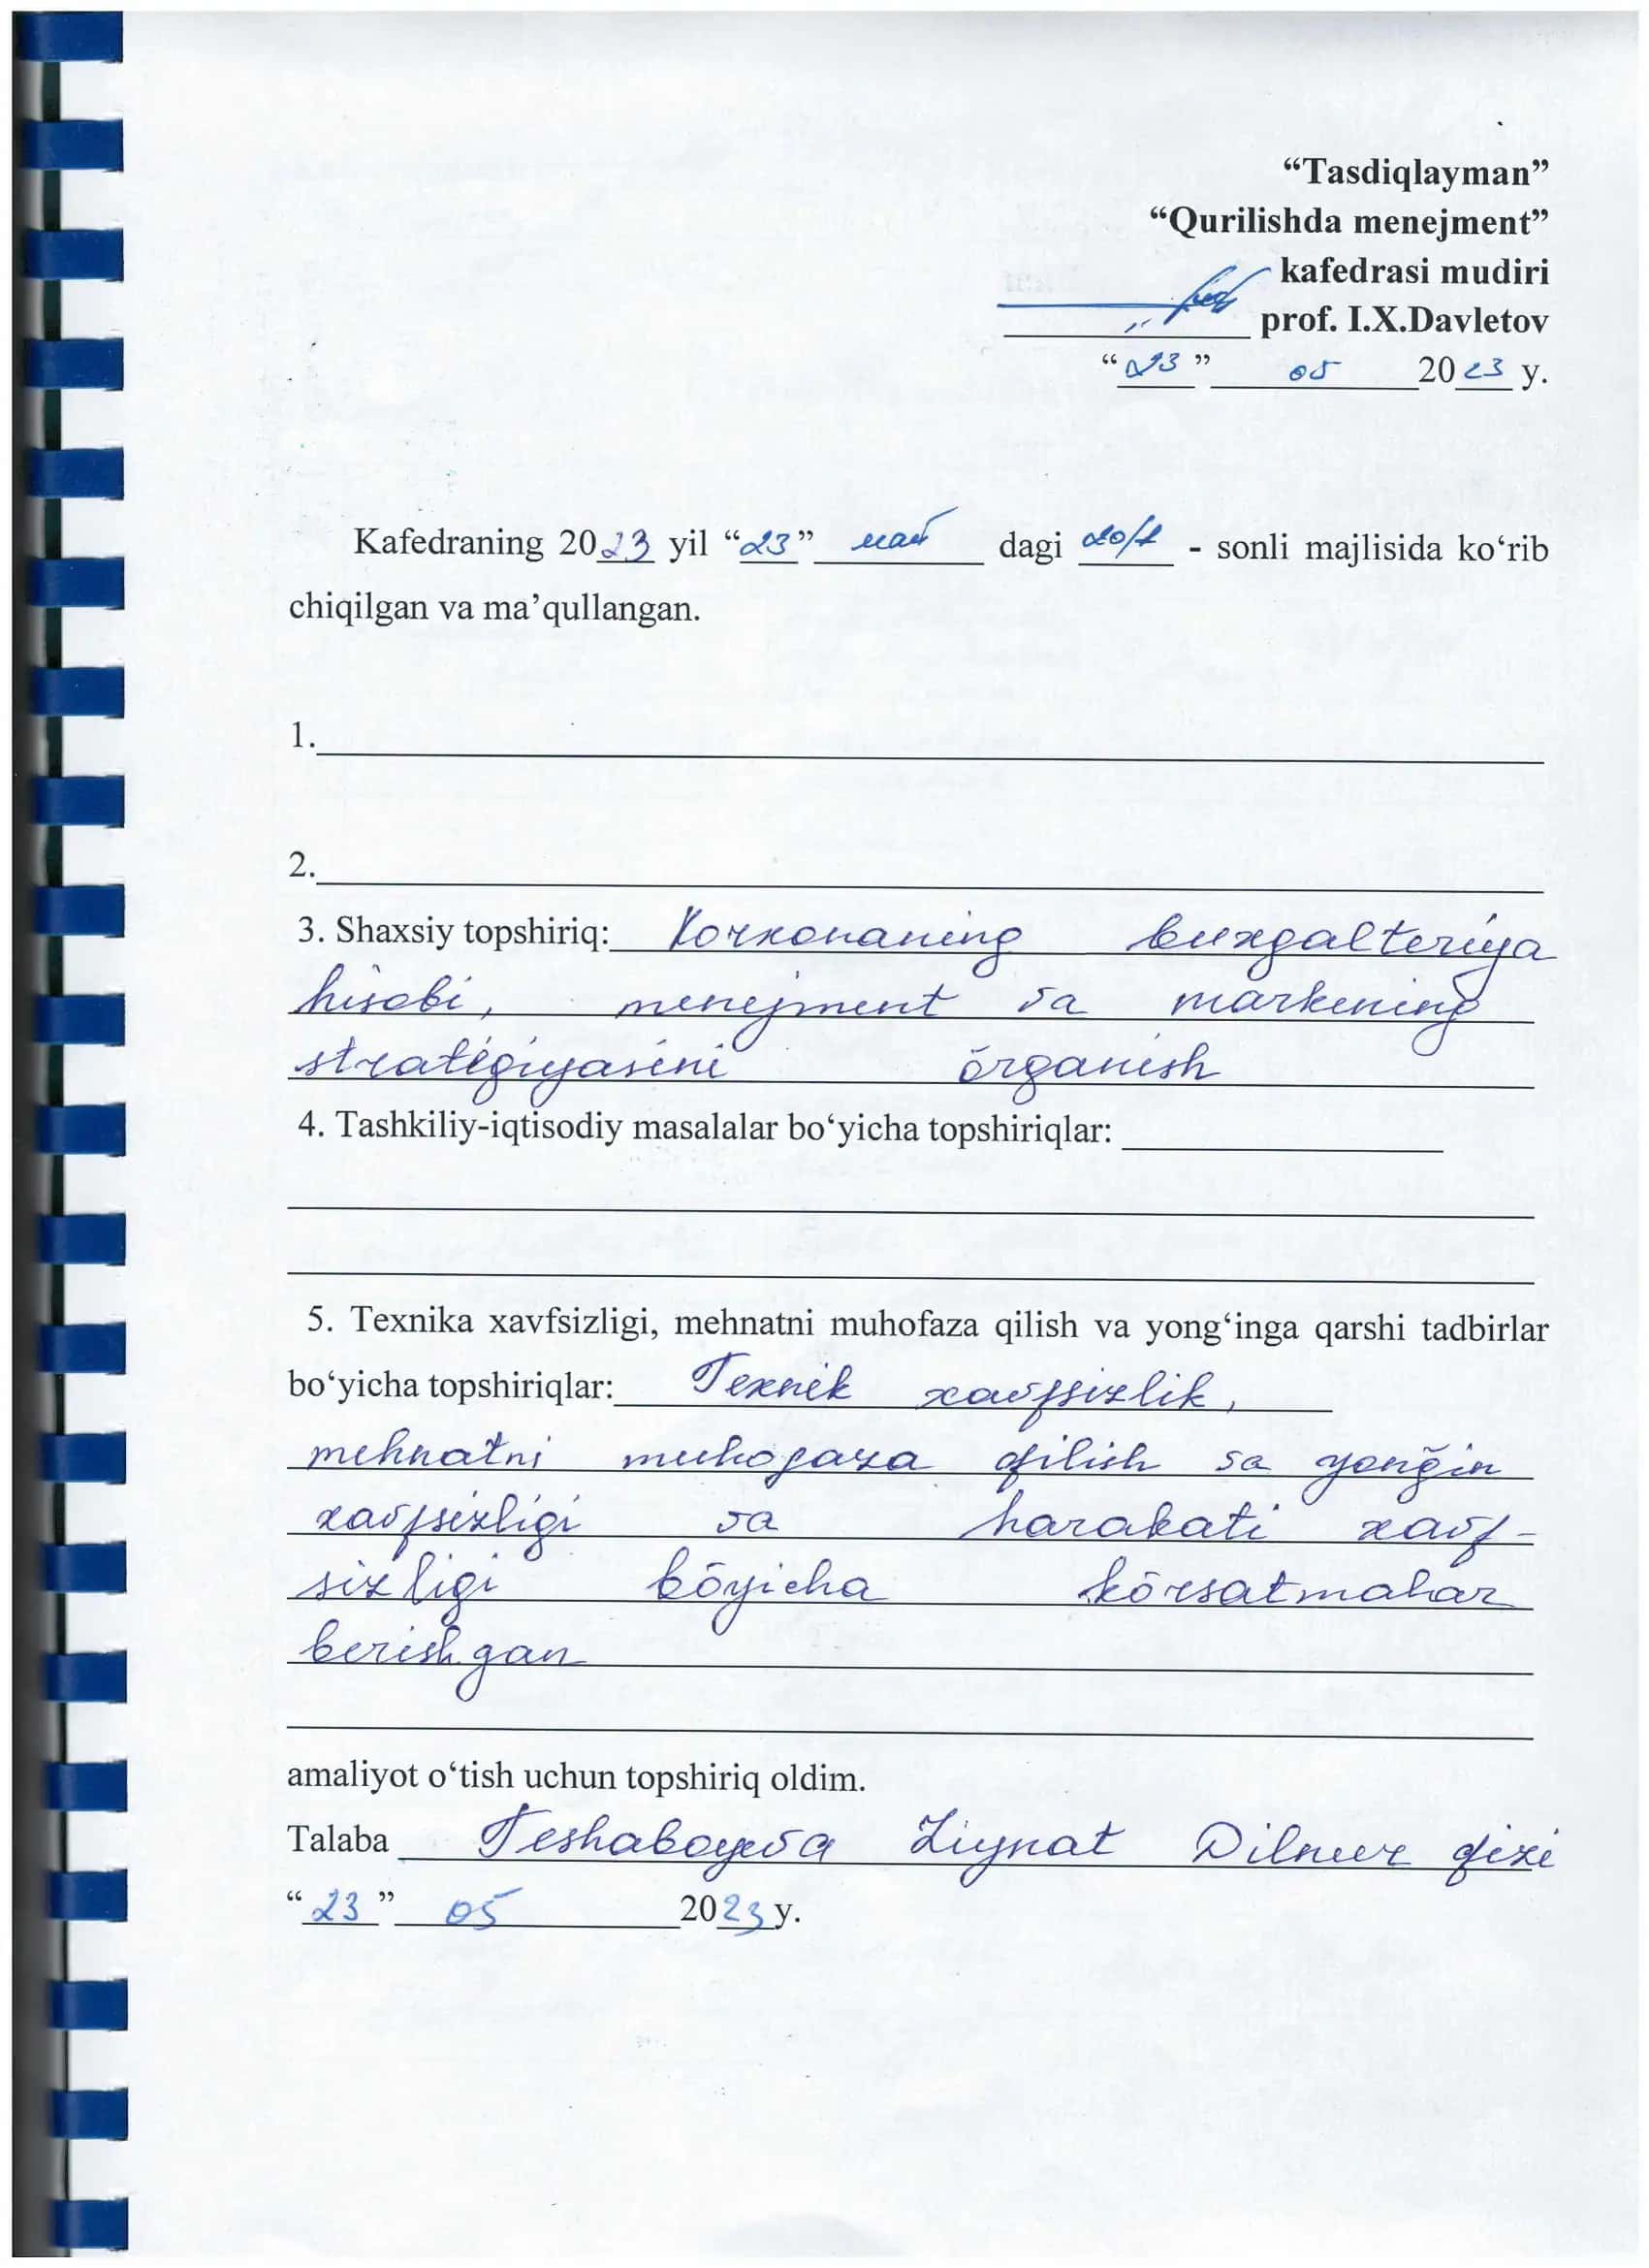 “Tasdiqlayman”
“Qurilishda menejment”
kafedrasi mudiri
prof. I.X.Davletov
“23” 05 2023 y.
Kafedraning 2023 yil “23” май dagi 20/1 - sonli majlisida ko‘rib
chiqilgan va ma’qullangan.
1.
2.
3. Shaxsiy topshiriq: Korxonaning buxgalteriya
hisobi, menejment va markening
strategiyasini õrganish
4. Tashkiliy-iqtisodiy masalalar bo‘yicha topshiriqlar:
5. Texnika xavfsizligi, mehnatni muhofaza qilish va yong‘inga qarshi tadbirlar
bo‘yicha topshiriqlar: Texnik xavfsizlik,
mehnatni muhofaza qilish va yonğin
xavfsizligi va harakati xavf-
sizligi bõyicha kõrsatmahar
berishgan
amaliyot o‘tish uchun topshiriq oldim.
Talaba Teshaboyeva Ziynat Dilmur qizi
“23” 05 2023 y.